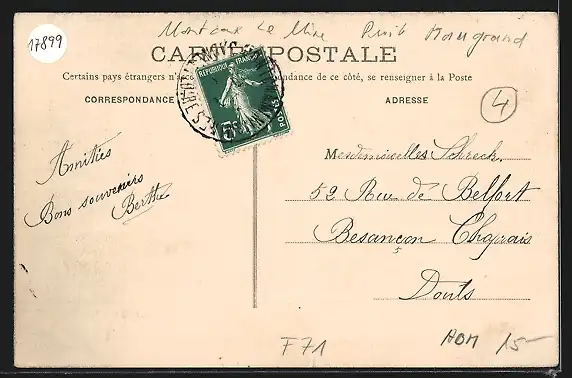 17899
Montceau Le Mine Puit Maugrand
CARTE POSTALE
Certains pays étrangers n'acc dance de ce côté, se renseigner à la Poste
CORRESPONDANCE
ADRESSE
4
REPUBLIQUE FRANÇAISE
5c
POSTES
Amitiés
Bons souvenirs
Berthe
Mesdemoiselles Schreck
52 Rue de Belfort
Besançon Chaprais
5
Doubs
F71
15-